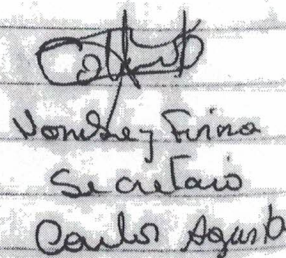 Nombre y Firma
Secretario
Carlos Agusto